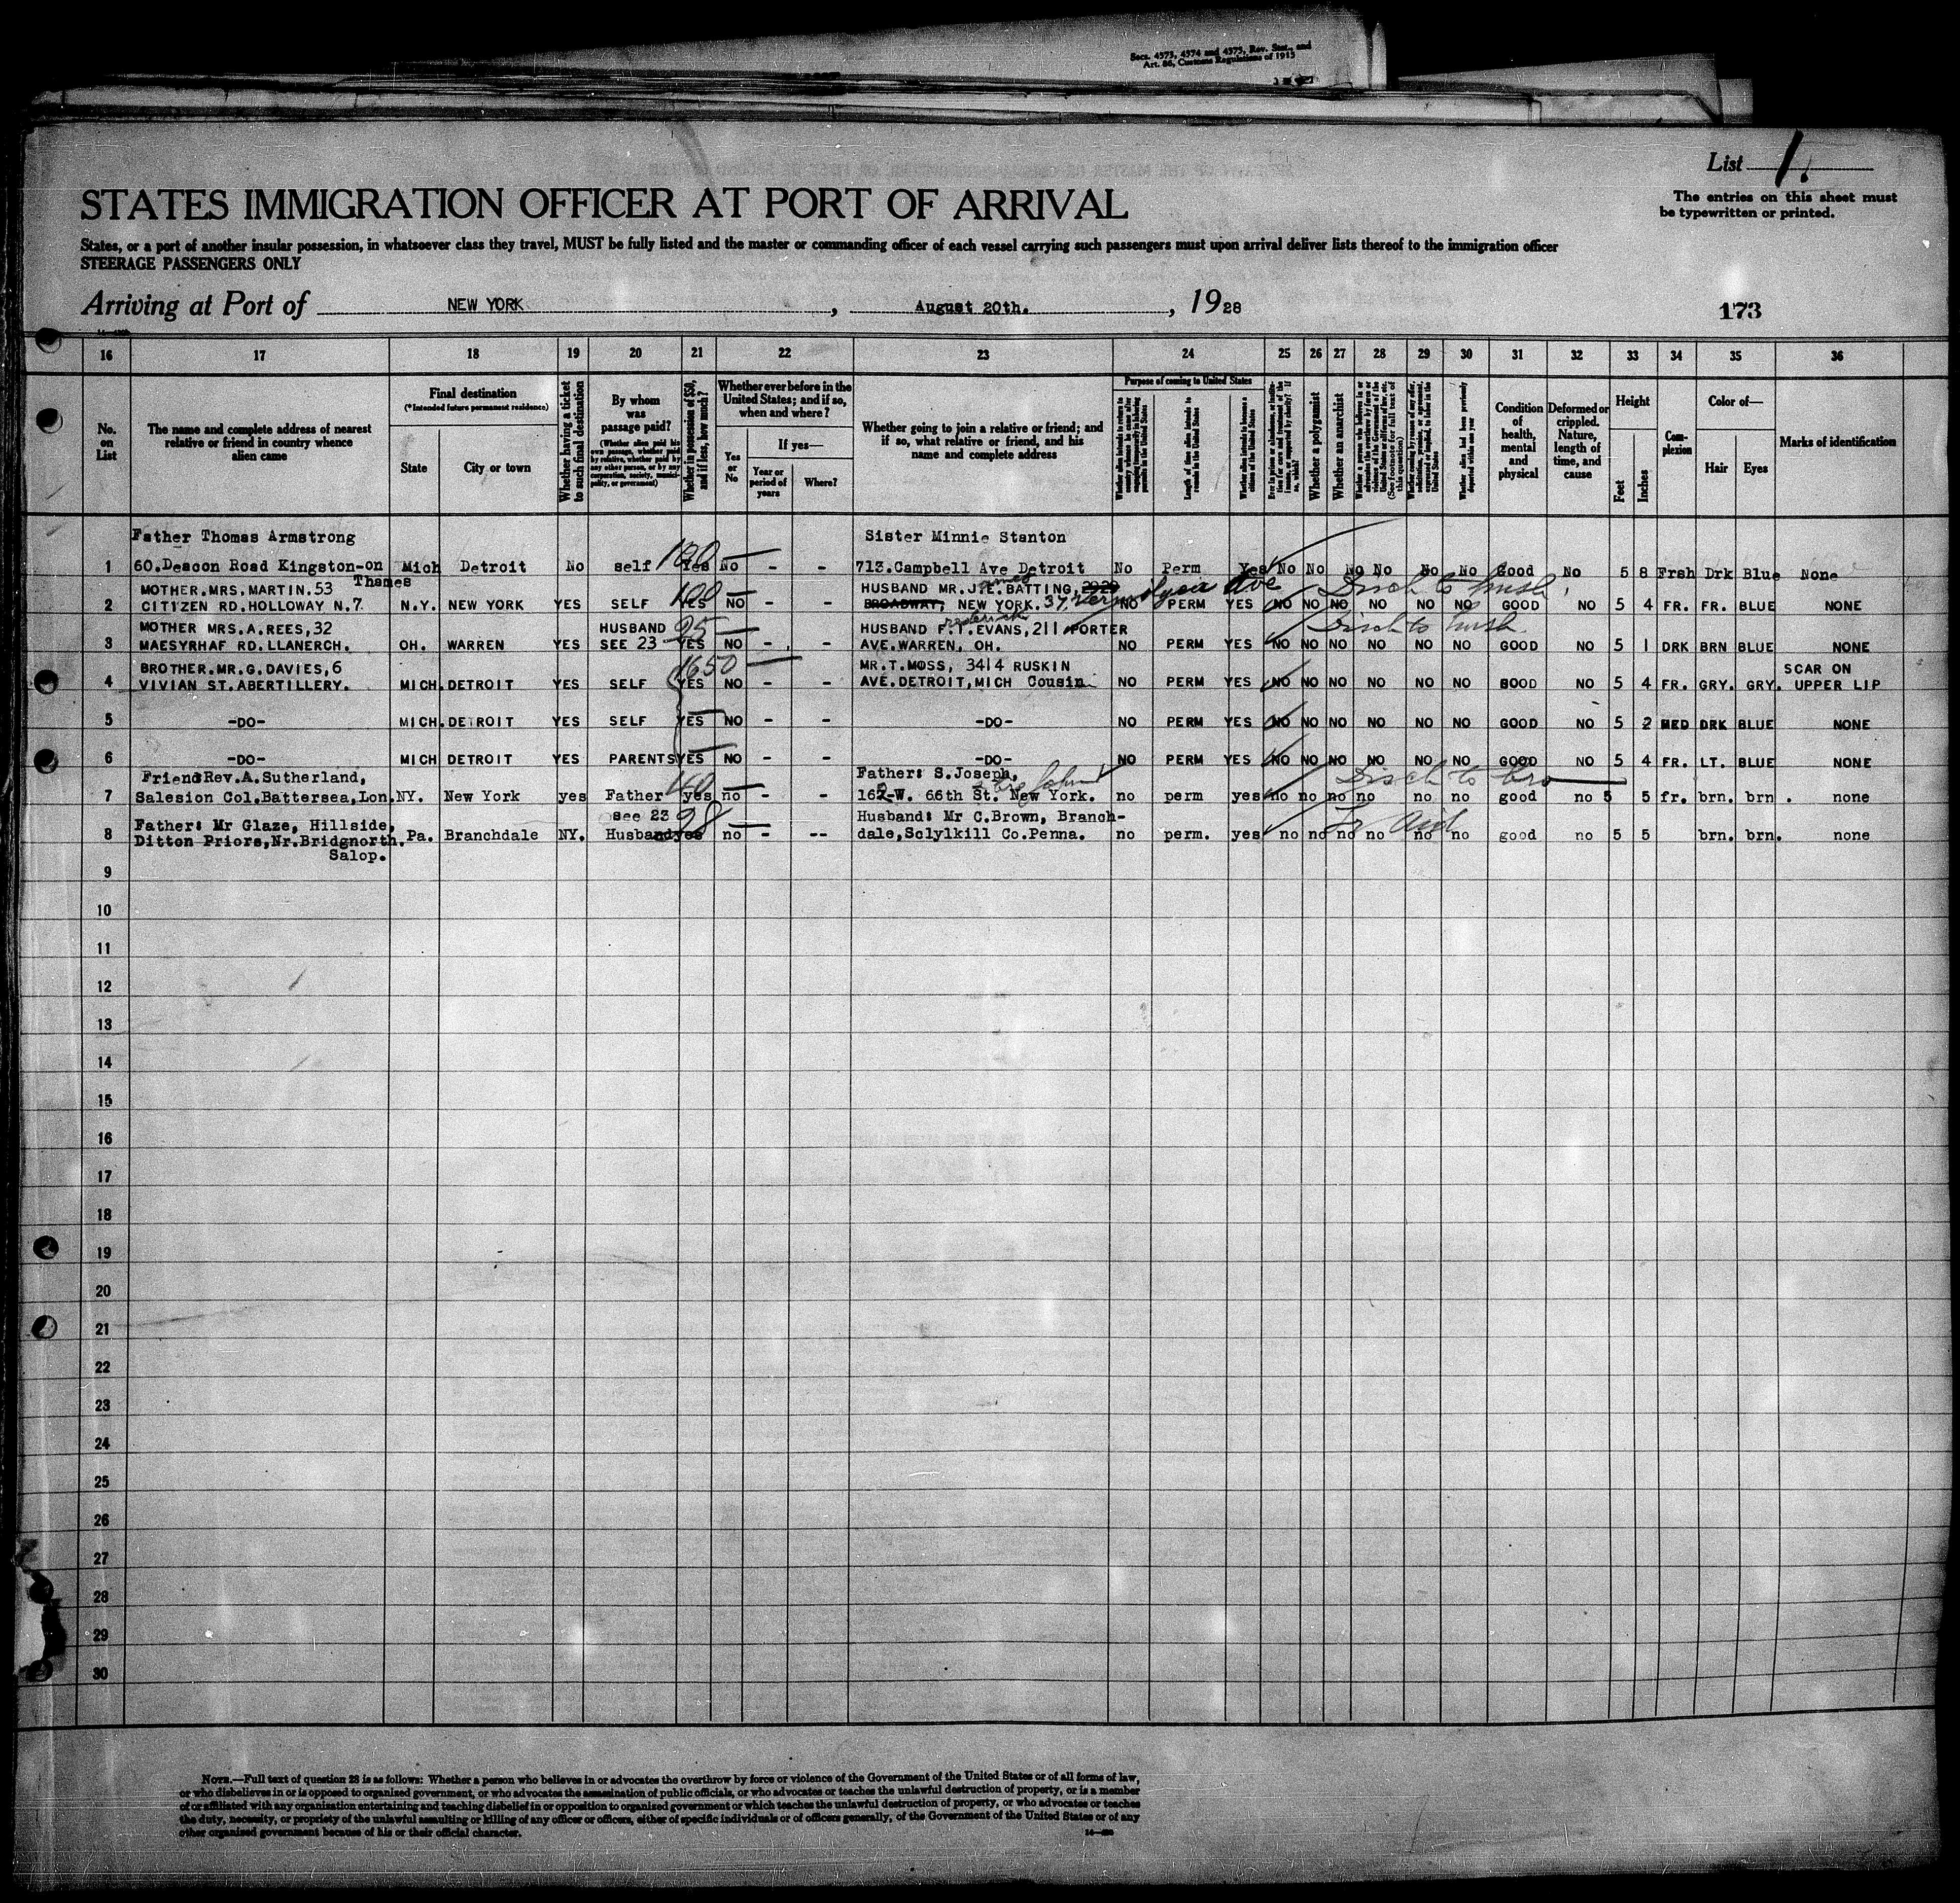 Secs. 4373, 4374 and 4375, Rev. Stat., and
Art. 86, Customs Regulations of 1915
List 1.
The entries on this sheet must
be typewritten or printed.
STATES IMMIGRATION OFFICER AT PORT OF ARRIVAL
States, or a port of another insular possession, in whatsoever class they travel, MUST be fully listed and the master or commanding officer of each vessel carrying such passengers must upon arrival deliver lists thereof to the immigration officer
STEERAGE PASSENGERS ONLY
Arriving at Port of NEW YORK, August 20th., 1928
173
16 17 18 19 20 21 22 23 24 25 26 27 28 29 30 31 32 33 34 35 36
No. on List
The name and complete address of nearest relative or friend in country whence alien came
Final destination
(*Intended future permanent residence)
State
City or town
Whether having a ticket to such final destination
By whom was passage paid?
(Whether alien paid his own passage, whether paid by relative, whether paid by any other person, or by any corporation, society, municipality, or government)
Whether in possession of $50, and if less, how much?
Whether ever before in the United States; and if so, when and where?
Yes or No
If yes—
Year or period of years
Where?
Whether going to join a relative or friend; and if so, what relative or friend, and his name and complete address
Purpose of coming to United States
Length of time alien intends to remain in the United States
Whether alien intends to become a citizen of the United States
Whether a polygamist
Whether an anarchist
(See footnote for full text of this question)
Whether alien had been previously deported within one year
Condition of health, mental and physical
Deformed or crippled. Nature, length of time, and cause
Height
Feet
Inches
Complexion
Color of—
Hair
Eyes
Marks of identification
Father Thomas Armstrong Sister Minnie Stanton
1 60.Deacon Road Kingston-on Thames Mich Detroit No self 120 Yes No - - 713.Campbell Ave Detroit No Perm Yes No No No No No No Good No 5 8 Frsh Drk Blue None
MOTHER.MRS.MARTIN.53 HUSBAND MR.J.E.BATTING, 2929
2 CITIZEN RD.HOLLOWAY N.7. N.Y. NEW YORK YES SELF 100 YES NO - - BROADWAY, NEW YORK. 37 Vermilyea Ave NO PERM YES NO NO NO NO NO NO GOOD NO 5 4 FR. FR. BLUE NONE
Disch to husb.
MOTHER MRS.A.REES,32 HUSBAND HUSBAND F.T.EVANS,211 PORTER
3 MAESYRHAF RD.LLANERCH. OH. WARREN YES SEE 23 25 YES NO - - AVE.WARREN, OH. NO PERM YES NO NO NO NO NO NO GOOD NO 5 1 DRK BRN BLUE NONE
Disch to husb.
BROTHER.MR.G.DAVIES,6 1650 MR.T.MOSS, 3414 RUSKIN SCAR ON
4 VIVIAN ST.ABERTILLERY. MICH. DETROIT YES SELF YES NO - - AVE.DETROIT,MICH Cousin NO PERM YES NO NO NO NO NO NO GOOD NO 5 4 FR. GRY. GRY. UPPER LIP
5 -DO- MICH. DETROIT YES SELF YES NO - - -DO- NO PERM YES NO NO NO NO NO NO GOOD NO 5 2 MED DRK BLUE NONE
6 -DO- MICH DETROIT YES PARENTS YES NO - - -DO- NO PERM YES NO NO NO NO NO NO GOOD NO 5 4 FR. LT. BLUE NONE
Friend Rev.A.Sutherland, Father: S.Joseph, John
7 Salesion Col.Battersea,Lon. NY. New York yes Father 40 yes no - - W. 66th St. New York. no perm yes no no no no no no good no 5 5 fr. brn. brn. none
Disch to bro
see 23
Father: Mr Glaze, Hillside, Husband: Mr C.Brown, Branch-
8 Ditton Priors,Nr.Bridgnorth. Pa. Branchdale NY. Husband 28 yes no - -- dale,Sclylkill Co.Penna. no perm. yes no no no no no no good no 5 5 brn. brn. none
Salop.
9
10
11
12
13
14
15
16
17
18
19
20
21
22
23
24
25
26
27
28
29
30
NOTE.—Full text of question 28 is as follows: Whether a person who believes in or advocates the overthrow by force or violence of the Government of the United States or of all forms of law,
or who disbelieves in or is opposed to organized government, or who advocates the assassination of public officials, or who advocates or teaches the unlawful destruction of property, or is a member
of or affiliated with any organization entertaining and teaching disbelief in or opposition to organized government or which teaches the unlawful destruction of property, or who advocates or teaches
the duty, necessity, or propriety of the unlawful assaulting or killing of any officer or officers, either of specific individuals or of officers generally, of the Government of the United States or of any
other organized government because of his or their official character.